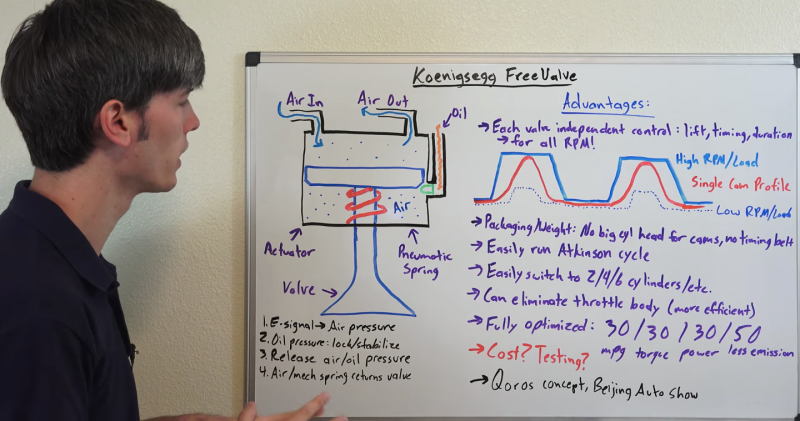 Koenigsegg FreeValve
Air In
Air Out
Oil
Air
Actuator
Pneumatic
Spring
Valve →
1. E-signal → Air pressure
2. Oil pressure: lock/stabilize
3. Release air/oil pressure
4. Air/mech spring returns valve
Advantages:
→ Each valve independent control: lift, timing, duration
→ for all RPM!
High RPM/Load
Single Cam Profile
Low RPM/Load
→ Packaging/Weight: No big cyl head for cams, no timing belt
→ Easily run Atkinson cycle
→ Easily switch to 2/4/6 cylinders/etc.
→ Can eliminate throttle body (more efficient)
→ Fully optimized: 30/30/30/50
mpg torque power less emission
→ Cost? Testing?
→ Qoros concept, Beijing Auto show